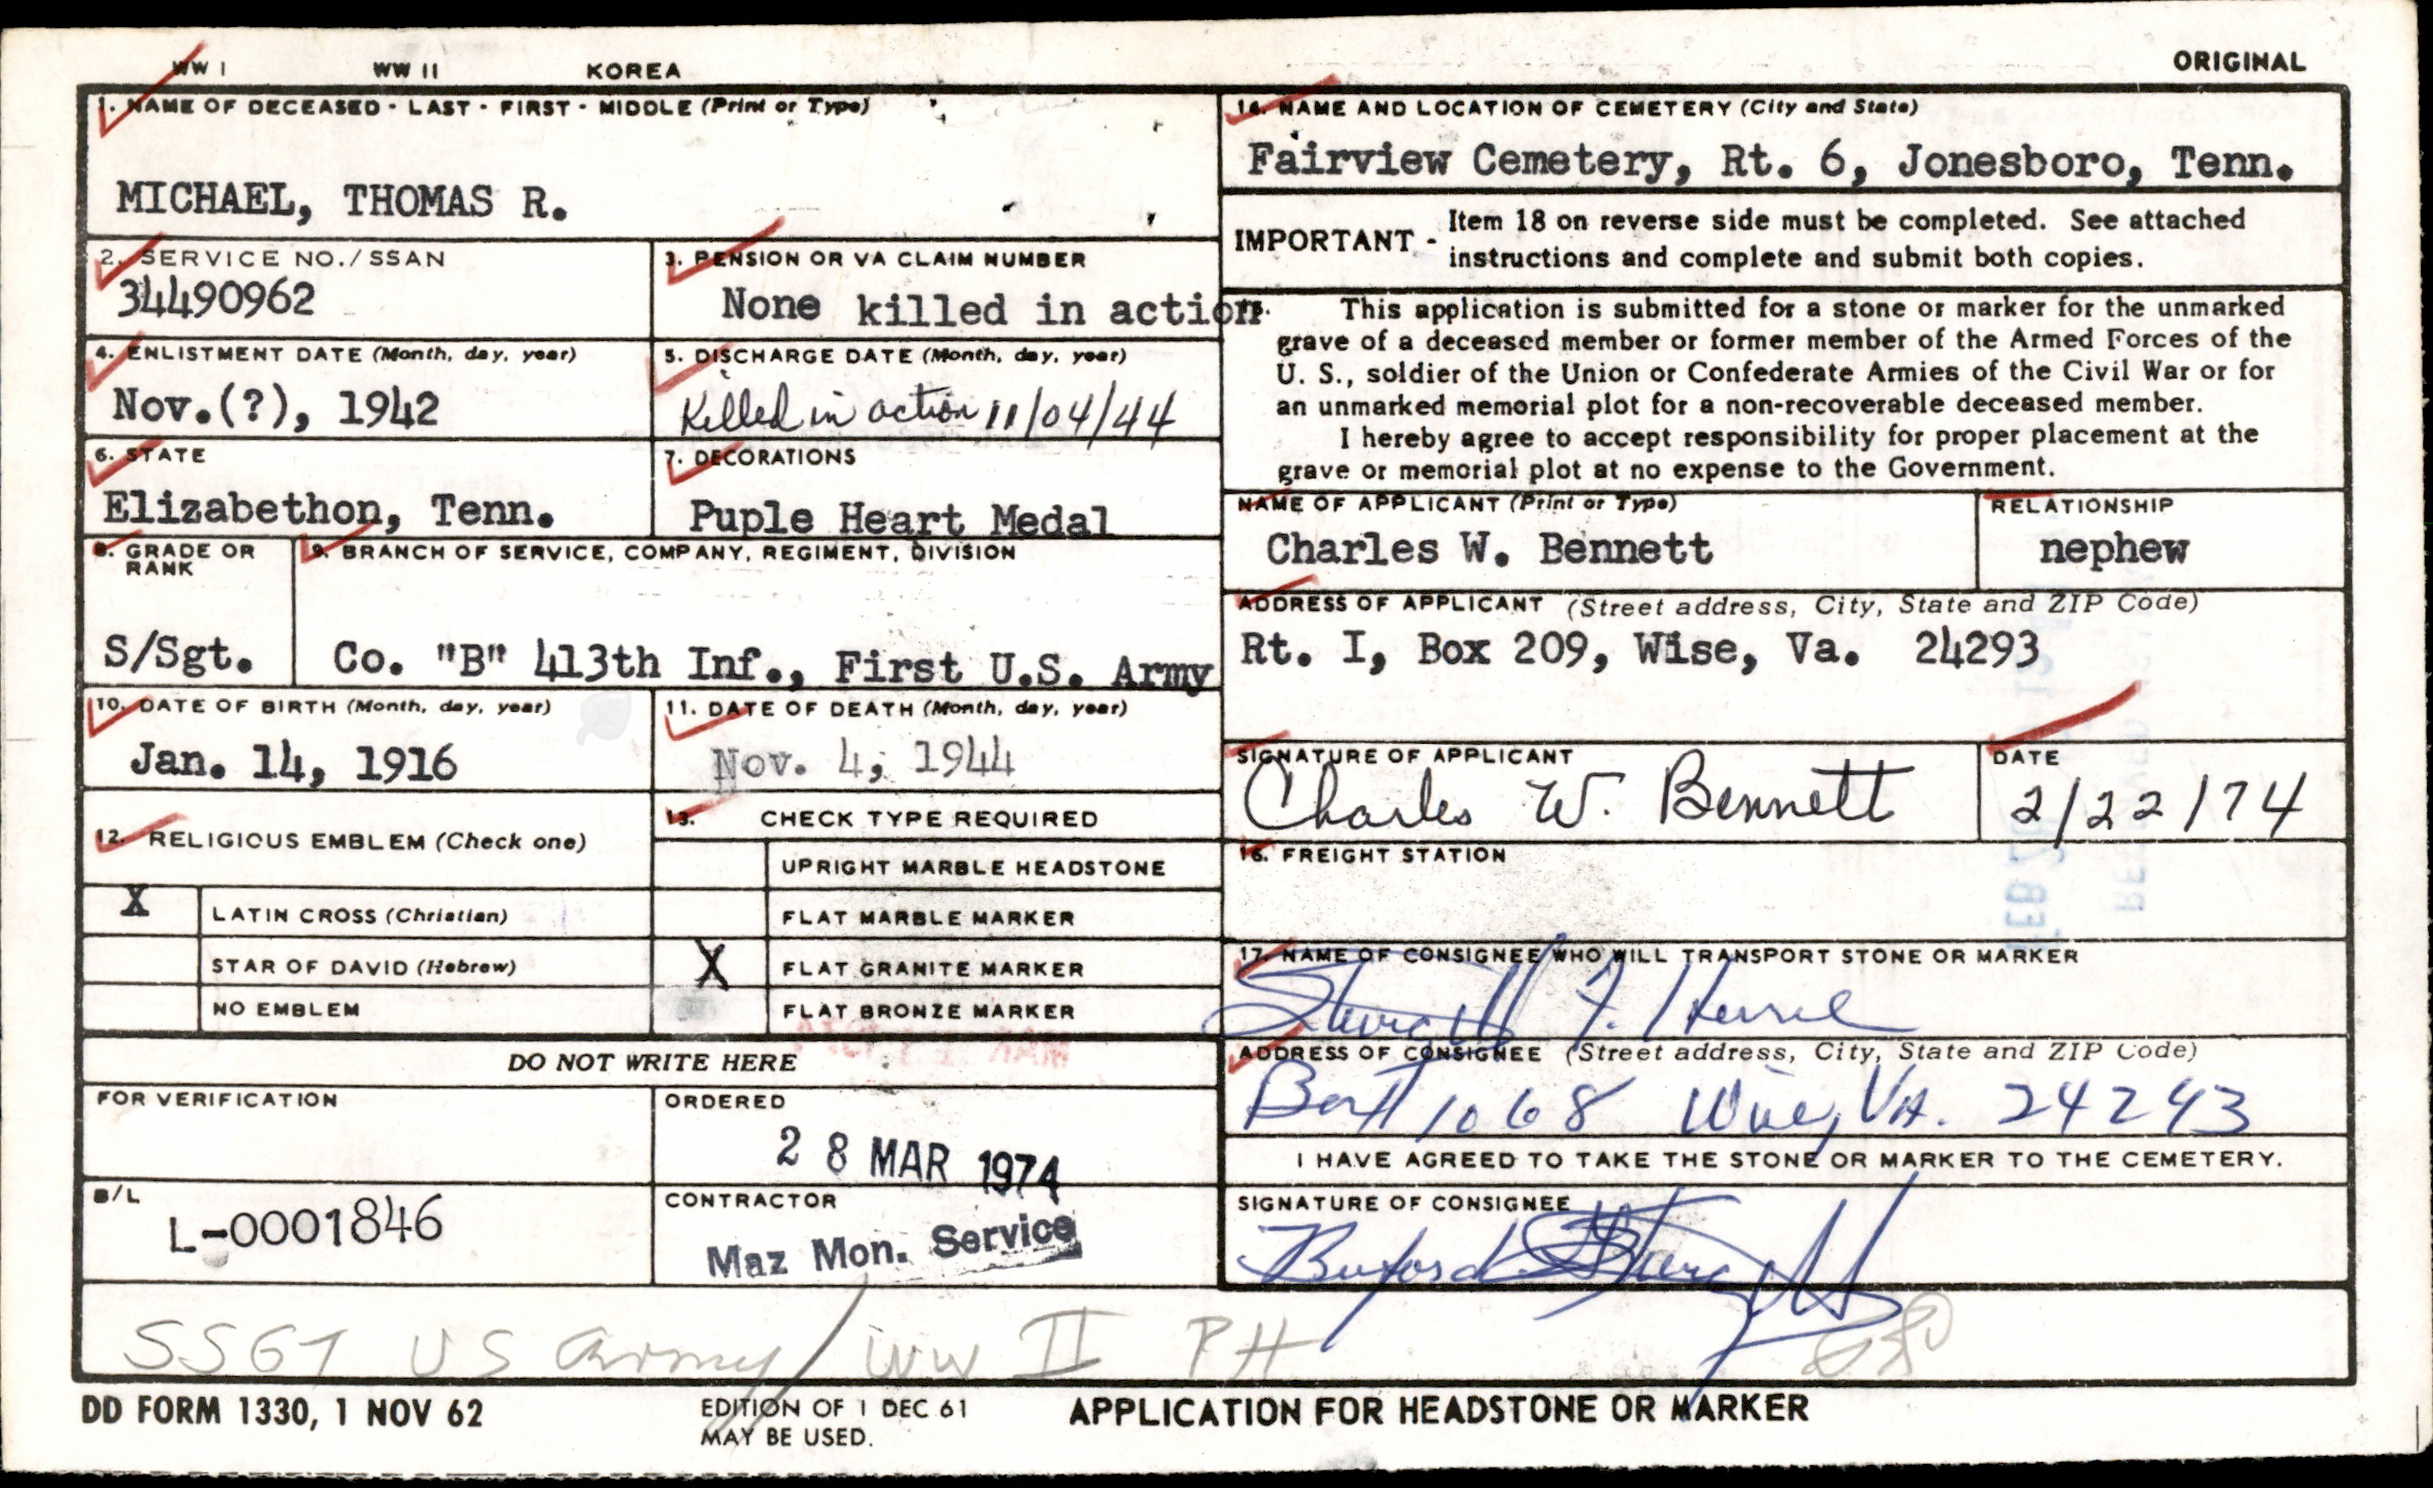 WW I WW II KOREA ORIGINAL
1. NAME OF DECEASED - LAST - FIRST - MIDDLE (Print or Type)
MICHAEL, THOMAS R.
2. SERVICE NO./SSAN
34490962
3. PENSION OR VA CLAIM NUMBER
None killed in action
4. ENLISTMENT DATE (Month, day, year)
Nov.(?), 1942
5. DISCHARGE DATE (Month, day, year)
Killed in action 11/04/44
6. STATE
Elizabethon, Tenn.
7. DECORATIONS
Puple Heart Medal
8. GRADE OR
RANK
S/Sgt.
9. BRANCH OF SERVICE, COMPANY, REGIMENT, DIVISION
Co. "B" 413th Inf., First U.S. Army
10. DATE OF BIRTH (Month, day, year)
Jan. 14, 1916
11. DATE OF DEATH (Month, day, year)
Nov. 4, 1944
12. RELIGIOUS EMBLEM (Check one)
X LATIN CROSS (Christian)
STAR OF DAVID (Hebrew)
NO EMBLEM
13. CHECK TYPE REQUIRED
UPRIGHT MARBLE HEADSTONE
FLAT MARBLE MARKER
X FLAT GRANITE MARKER
FLAT BRONZE MARKER
DO NOT WRITE HERE
FOR VERIFICATION
ORDERED
28 MAR 1974
B/L
L-0001846
CONTRACTOR
Maz Mon. Service
14. NAME AND LOCATION OF CEMETERY (City and State)
Fairview Cemetery, Rt. 6, Jonesboro, Tenn.
IMPORTANT - Item 18 on reverse side must be completed. See attached
instructions and complete and submit both copies.
This application is submitted for a stone or marker for the unmarked
grave of a deceased member or former member of the Armed Forces of the
U. S., soldier of the Union or Confederate Armies of the Civil War or for
an unmarked memorial plot for a non-recoverable deceased member.
I hereby agree to accept responsibility for proper placement at the
grave or memorial plot at no expense to the Government.
NAME OF APPLICANT (Print or Type)
Charles W. Bennett
RELATIONSHIP
nephew
ADDRESS OF APPLICANT (Street address, City, State and ZIP Code)
Rt. I, Box 209, Wise, Va. 24293
SIGNATURE OF APPLICANT
Charles W. Bennett
DATE
2/22/74
16. FREIGHT STATION
17. NAME OF CONSIGNEE WHO WILL TRANSPORT STONE OR MARKER
ADDRESS OF CONSIGNEE (Street address, City, State and ZIP Code)
Box 1068 Wise, VA. 24293
I HAVE AGREED TO TAKE THE STONE OR MARKER TO THE CEMETERY.
SIGNATURE OF CONSIGNEE
SSGT US Army / WW II PH
DD FORM 1330, 1 NOV 62
EDITION OF 1 DEC 61
MAY BE USED.
APPLICATION FOR HEADSTONE OR MARKER